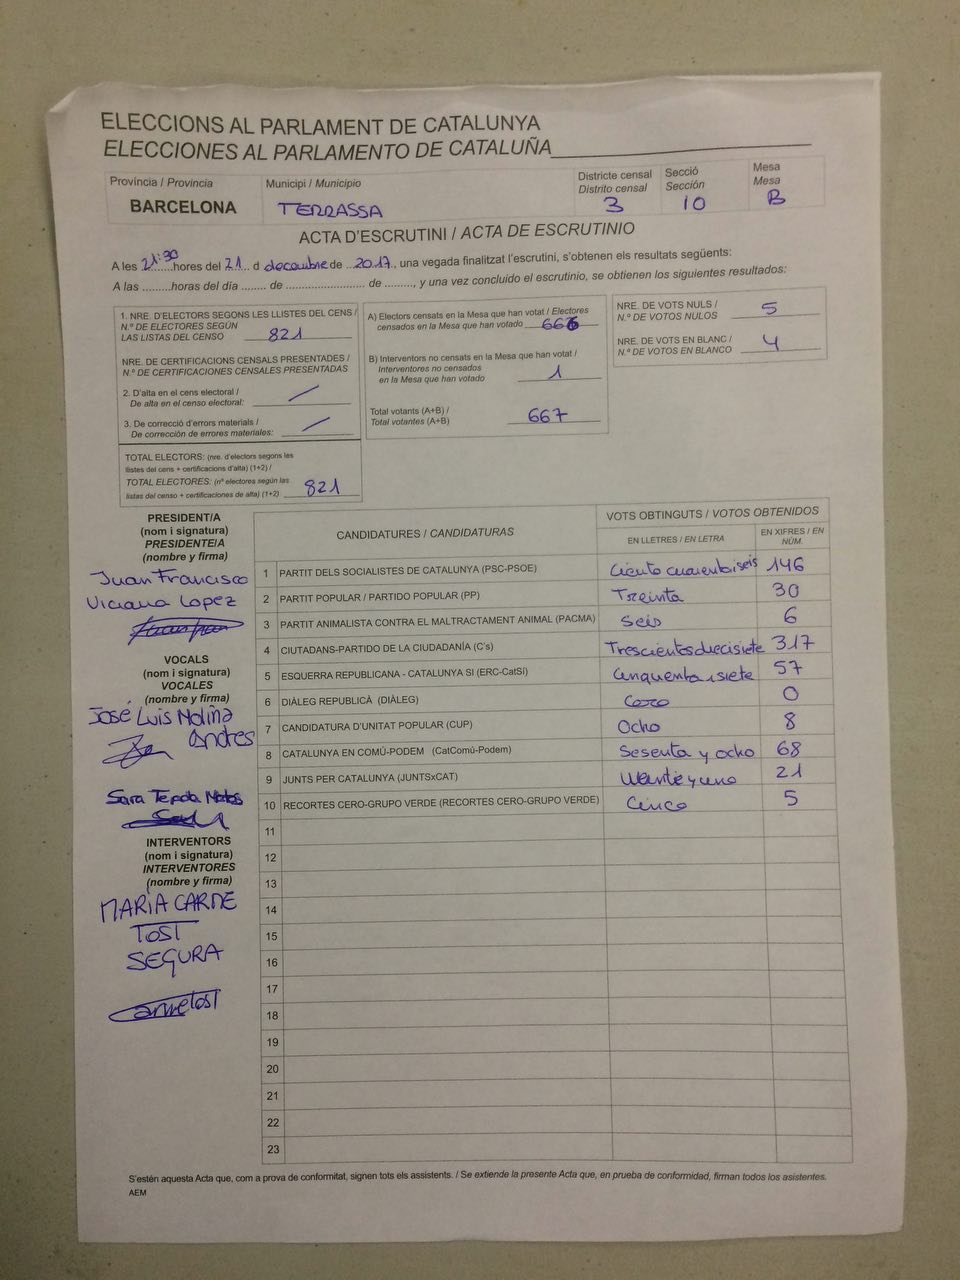 ELECCIONS AL PARLAMENT DE CATALUNYA
ELECCIONES AL PARLAMENTO DE CATALUÑA
Província / Provincia
BARCELONA
Municipi / Municipio
TERRASSA
Districte censal
Distrito censal
3
Secció
Sección
10
Mesa
Mesa
B
ACTA D'ESCRUTINI / ACTA DE ESCRUTINIO
A les 21:30 hores del 21 d decembre de 2017, una vegada finalitzat l'escrutini, s'obtenen els resultats següents:
A las .........horas del día ....... de ....................... de ........, y una vez concluido el escrutinio, se obtienen los siguientes resultados:
1. NRE. D'ELECTORS SEGONS LES LLISTES DEL CENS /
N.º DE ELECTORES SEGÚN
LAS LISTAS DEL CENSO 821
NRE. DE CERTIFICACIONS CENSALS PRESENTADES /
N.º DE CERTIFICACIONES CENSALES PRESENTADAS
2. D'alta en el cens electoral /
De alta en el censo electoral: /
3. De correcció d'errors materials /
De corrección de errores materiales: /
TOTAL ELECTORS: (nre. d'electors segons les
llistes del cens + certificacions d'alta) (1+2) /
TOTAL ELECTORES: (nº electores según las
listas del censo + certificaciones de alta) (1+2) 821
A) Electors censats en la Mesa que han votat / Electores
censados en la Mesa que han votado 666
B) Interventors no censats en la Mesa que han votat /
Interventores no censados
en la Mesa que han votado 1
Total votants (A+B) /
Total votantes (A+B) 667
NRE. DE VOTS NULS /
N.º DE VOTOS NULOS 5
NRE. DE VOTS EN BLANC /
N.º DE VOTOS EN BLANCO 4
PRESIDENT/A
(nom i signatura)
PRESIDENTE/A
(nombre y firma)
Juan Francisco
Viciana Lopez
VOCALS
(nom i signatura)
VOCALES
(nombre y firma)
José Luis Molina
Andres
Sara
INTERVENTORS
(nom i signatura)
INTERVENTORES
(nombre y firma)
MARIA CARME
TOST
SEGURA
Carme Tost
CANDIDATURES / CANDIDATURAS
VOTS OBTINGUTS / VOTOS OBTENIDOS
EN LLETRES / EN LETRA
EN XIFRES / EN
NÚM.
1 PARTIT DELS SOCIALISTES DE CATALUNYA (PSC-PSOE) Ciento cuarentaiseis 146
2 PARTIT POPULAR / PARTIDO POPULAR (PP) Treinta 30
3 PARTIT ANIMALISTA CONTRA EL MALTRACTAMENT ANIMAL (PACMA) Seis 6
4 CIUTADANS-PARTIDO DE LA CIUDADANÍA (C's) Trescientos diecisiete 317
5 ESQUERRA REPUBLICANA - CATALUNYA SI (ERC-CatSí) Cinquenta isiete 57
6 DIÀLEG REPUBLICÀ (DIÀLEG) Cero 0
7 CANDIDATURA D'UNITAT POPULAR (CUP) Ocho 8
8 CATALUNYA EN COMÚ-PODEM (CatComú-Podem) Sesenta y ocho 68
9 JUNTS PER CATALUNYA (JUNTSxCAT) Veinte y uno 21
10 RECORTES CERO-GRUPO VERDE (RECORTES CERO-GRUPO VERDE) Cinco 5
11
12
13
14
15
16
17
18
19
20
21
22
23
S'estén aquesta Acta que, com a prova de conformitat, signen tots els assistents. / Se extiende la presente Acta que, en prueba de conformidad, firman todos los asistentes.
AEM